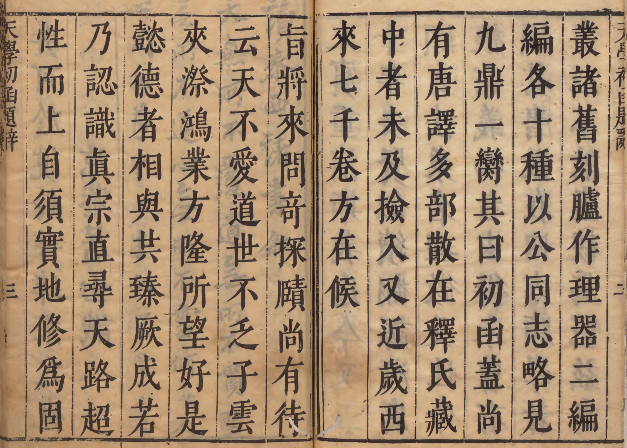 叢諸舊刻臚作理器二編
編各十種以公同志略見
九鼎一臠其曰初函蓋尚
有唐譯多部散在釋氏藏
中者未及撿入又近歲西
來七千卷方在候
旨將來問奇探賾尚有待
云天不愛道世不乏子雲
夾漈鴻業方隆所望好是
懿德者相與共臻厥成若
乃認識眞宗直尋天路超
性而上自須實地修爲固
天學初函題辭
三